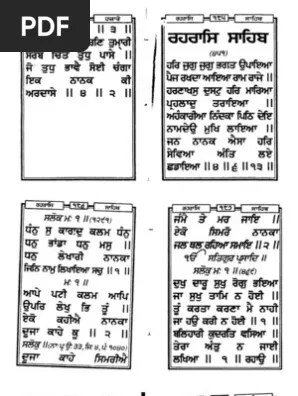 PDF
ਹਜ਼ਾਰੇ
॥ ੩ ॥
ਸਰਬ ਚਿੰਤ ਤੁਧੁ ਪਾਸੇ ॥
ਜੋ ਤੁਧੁ ਭਾਵੈ ਸੋਈ ਚੰਗਾ
ਇਕ ਨਾਨਕ ਕੀ
ਅਰਦਾਸੇ ॥ ੪ ॥ ੨ ॥
ਰਹਰਾਸਿ ਸਾਹਿਬ
ਰਹਰਾਸਿ ਸਾਹਿਬ
ਹਰਿ ਜੁਗੁ ਜੁਗੁ ਭਗਤ ਉਪਾਇਆ
ਪੈਜ ਰਖਦਾ ਆਇਆ ਰਾਮ ਰਾਜੇ ॥
ਹਰਣਾਖਸੁ ਦੁਸਟੁ ਹਰਿ ਮਾਰਿਆ
ਪ੍ਰਹਲਾਦੁ ਤਰਾਇਆ ॥
ਅਹੰਕਾਰੀਆ ਨਿੰਦਕਾ ਪਿਠਿ ਦੇਇ
ਨਾਮਦੇਉ ਮੁਖਿ ਲਾਇਆ ॥
ਜਨ ਨਾਨਕ ਐਸਾ ਹਰਿ
ਸੇਵਿਆ ਅੰਤਿ ਲਏ
ਛਡਾਇਆ ॥ ੪ ॥ ੬ ॥ ੧੩ ॥
ਰਹਰਾਸਿ ਸਾਹਿਬ
ਸਲੋਕੁ ਮਃ ੧ ॥ (੧੨੯੧)
ਧੰਨੁ ਸੁ ਕਾਗਦੁ ਕਲਮ ਧੰਨੁ
ਧਨੁ ਭਾਂਡਾ ਧਨੁ ਮਸੁ ॥
ਧਨੁ ਲੇਖਾਰੀ ਨਾਨਕਾ
ਜਿਨਿ ਨਾਮੁ ਲਿਖਾਇਆ ਸਚੁ ॥ ੧ ॥
ਮਃ ੧ ॥
ਆਪੇ ਪਟੀ ਕਲਮ ਆਪਿ
ਉਪਰਿ ਲੇਖੁ ਭਿ ਤੂੰ ॥
ਏਕੋ ਕਹੀਐ ਨਾਨਕਾ
ਦੂਜਾ ਕਾਹੇ ਕੂ ॥ ੨ ॥
ਸਲੋਕੁ ॥
ਦੂਜਾ ਕਾਹੇ ਸਿਮਰੀਐ
ਰਹਰਾਸਿ ਸਾਹਿਬ
ਜੰਮੈ ਤੇ ਮਰ ਜਾਇ ॥
ਏਕੋ ਸਿਮਰੋ ਨਾਨਕਾ
ਜਲ ਥਲ ਰਹਿਆ ਸਮਾਇ ॥ ੨ ॥
ੴ ਸਤਿਗੁਰ ਪ੍ਰਸਾਦਿ ॥
ਸਲੋਕੁ ਮਃ ੧ ॥ (੪੬੯)
ਦੁਖੁ ਦਾਰੂ ਸੁਖੁ ਰੋਗੁ ਭਇਆ
ਜਾ ਸੁਖੁ ਤਾਮਿ ਨ ਹੋਈ ॥
ਤੂੰ ਕਰਤਾ ਕਰਣਾ ਮੈ ਨਾਹੀ
ਜਾ ਹਉ ਕਰੀ ਨ ਹੋਈ ॥ ੧ ॥
ਬਲਿਹਾਰੀ ਕੁਦਰਤਿ ਵਸਿਆ ॥
ਤੇਰਾ ਅੰਤੁ ਨ ਜਾਈ
ਲਖਿਆ ॥ ੧ ॥ ਰਹਾਉ ॥